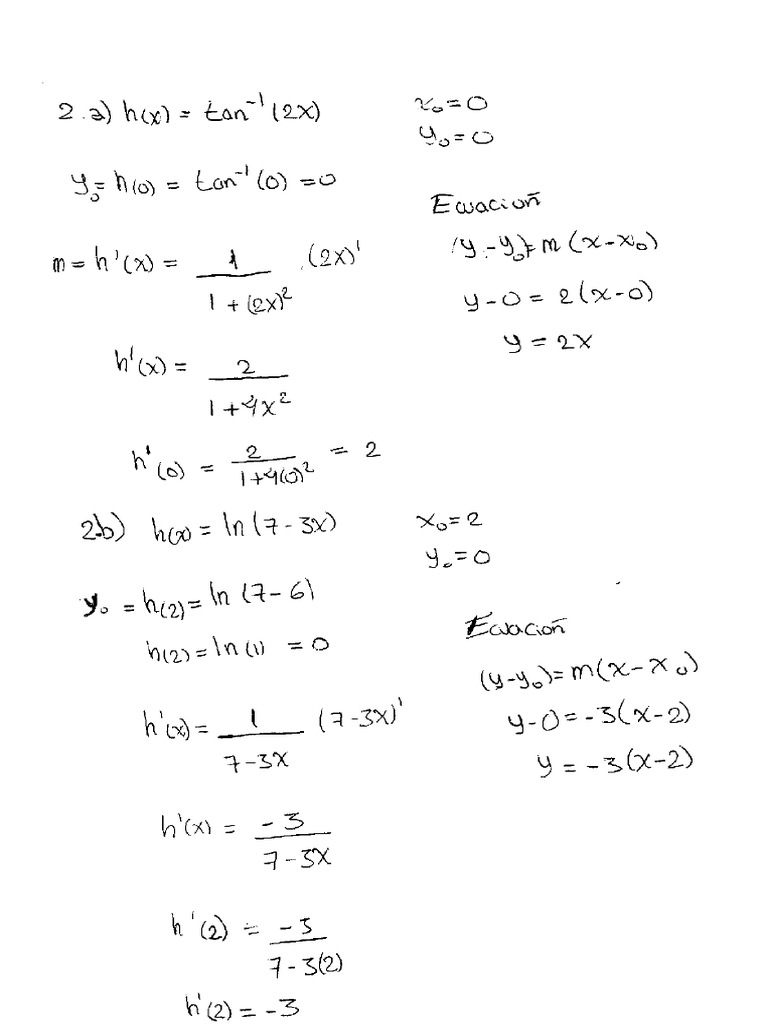 2.a) h(x) = tan⁻¹(2x)
x₀=0
y₀=0
y₀= h(0) = tan⁻¹(0) =0
Ecuación
(y-y₀)= m(x-x₀)
m = h'(x) = 1/(1+(2x)²) . (2x)'
y-0 = 2(x-0)
y = 2x
h'(x) = 2/(1+4x²)
h'(0) = 2/(1+4(0)²) = 2
2.b) h(x) = ln(7-3x)
x₀=2
y₀=0
y₀ = h(2) = ln(7-6)
h(2) = ln(1) = 0
Ecuación
(y-y₀)=m(x-x₀)
h'(x) = 1/(7-3x) (7-3x)'
y-0=-3(x-2)
y = -3(x-2)
h'(x) = -3/(7-3x)
h'(2) = -3/(7-3(2))
h'(2) = -3